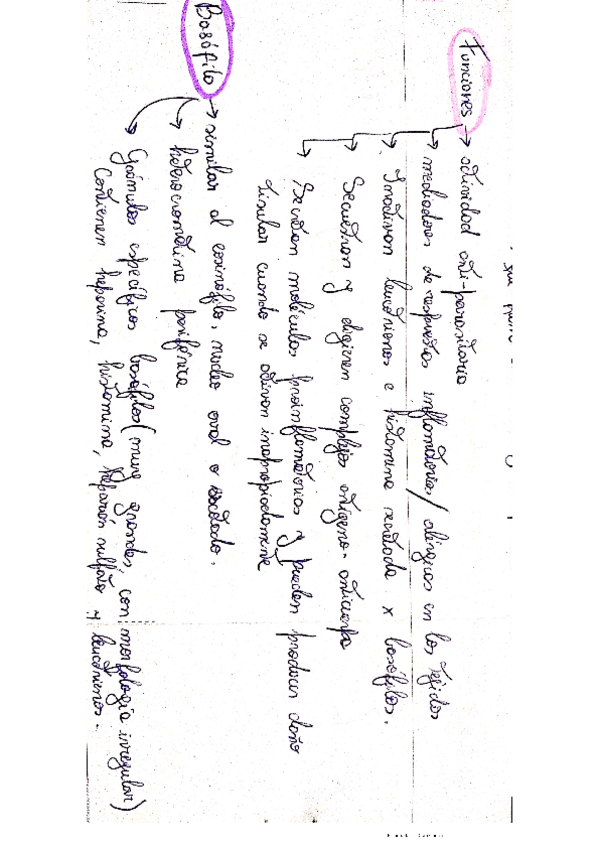 Funciones → actividad anti-parasitaria
→ mediadores de respuestas inflamatorias/alérgicas en los tejidos
→ Inactivan leucotrienos e histamina secretada x basófilos.
→ Secuestran y digieren complejos antígeno-anticuerpo
→ Secretan moléculas proinflamatorias y pueden producir daño
tisular cuando se activan inapropiadamente
Basófilo → similar al eosinófilo, nucleo oval o escotado.
→ heterocromatina periférica
→ Gránulos específicos basófilos (muy grandes, con morfología irregular)
Contienen heparina, histamina, heparán sulfato y leucotrienos.